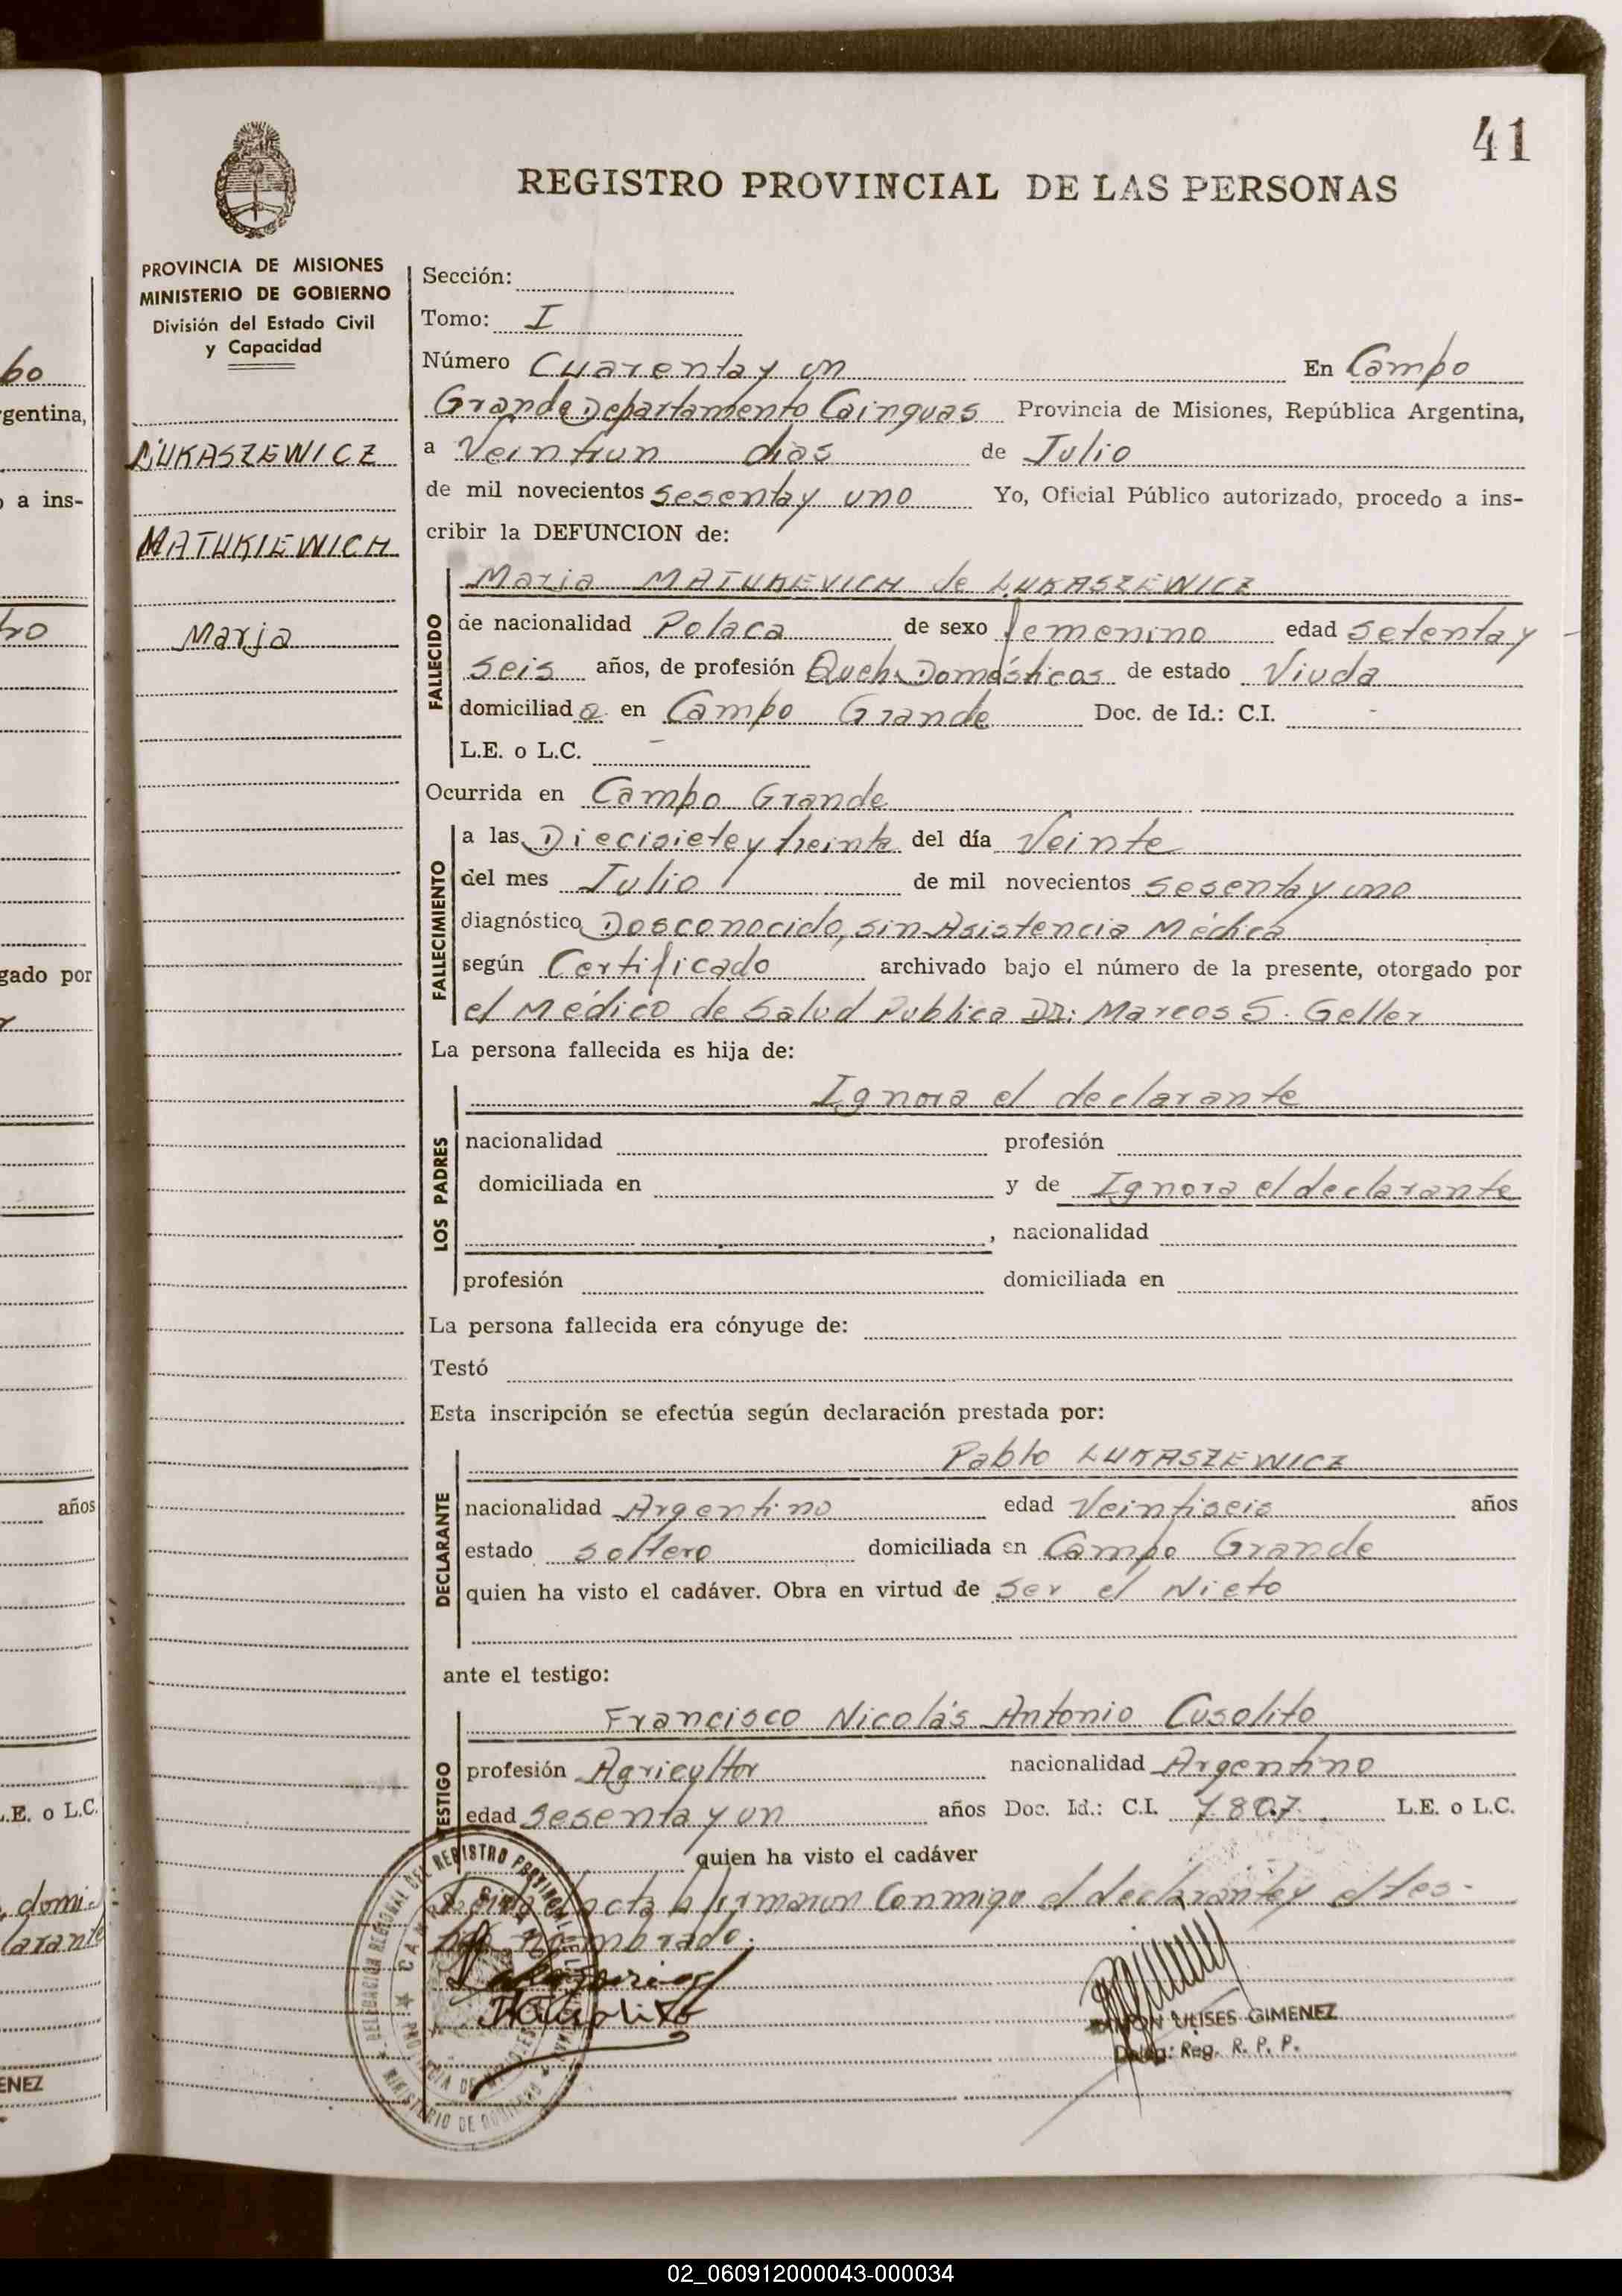 41
REGISTRO PROVINCIAL DE LAS PERSONAS
PROVINCIA DE MISIONES
MINISTERIO DE GOBIERNO
División del Estado Civil
y Capacidad
LUKASZEWICZ
MATUKIEWICH
Maria
Sección:
Tomo: I
Número Cuarenta y un En Campo
Grande Departamento Cainguas Provincia de Misiones, República Argentina,
a Veintiun dias de Julio
de mil novecientos sesenta y uno Yo, Oficial Público autorizado, procedo a ins-
cribir la DEFUNCION de:
FALLECIDO
Maria MATUKEVICH de LUKASZEWICZ
de nacionalidad Polaca de sexo femenino edad setenta y
seis años, de profesión Queh. Domésticos de estado Viuda
domiciliada en Campo Grande Doc. de Id.: C.I. -
L.E. o L.C. -
Ocurrida en Campo Grande
FALLECIMIENTO
a las Diecisiete y treinta del día Veinte
del mes Julio de mil novecientos sesenta y uno
diagnóstico Desconocido, sin Asistencia Médica
según Certificado archivado bajo el número de la presente, otorgado por
el Médico de Salud Publica DR: Marcos S. Geller
La persona fallecida es hija de:
LOS PADRES
Ignora el declarante
nacionalidad profesión
domiciliada en y de Ignora el declarante
, nacionalidad
profesión domiciliada en
La persona fallecida era cónyuge de:
Testó
Esta inscripción se efectúa según declaración prestada por:
DECLARANTE
Pablo LUKASZEWICZ
nacionalidad Argentino edad Veintiseis años
estado soltero domiciliada en Campo Grande
quien ha visto el cadáver. Obra en virtud de ser el Nieto
ante el testigo:
TESTIGO
Francisco Nicolás Antonio Cusolito
profesión Agricultor nacionalidad Argentino
edad sesenta y un años Doc. Id.: C.I. 1.807. L.E. o L.C.
quien ha visto el cadáver
acta la firmaron conmigo el declarante y el tes-
tigo nombrado.
ULISES GIMENEZ
Deleg: Reg. R. P. P.
DELEGACION REGIONAL DEL REGISTRO PROVINCIAL DE
MINISTERIO DE GOBIERNO
bo
rgentina,
o a ins-
gado por
años
.E. o L.C.
domi-
larante
ENEZ
02_060912000043-000034